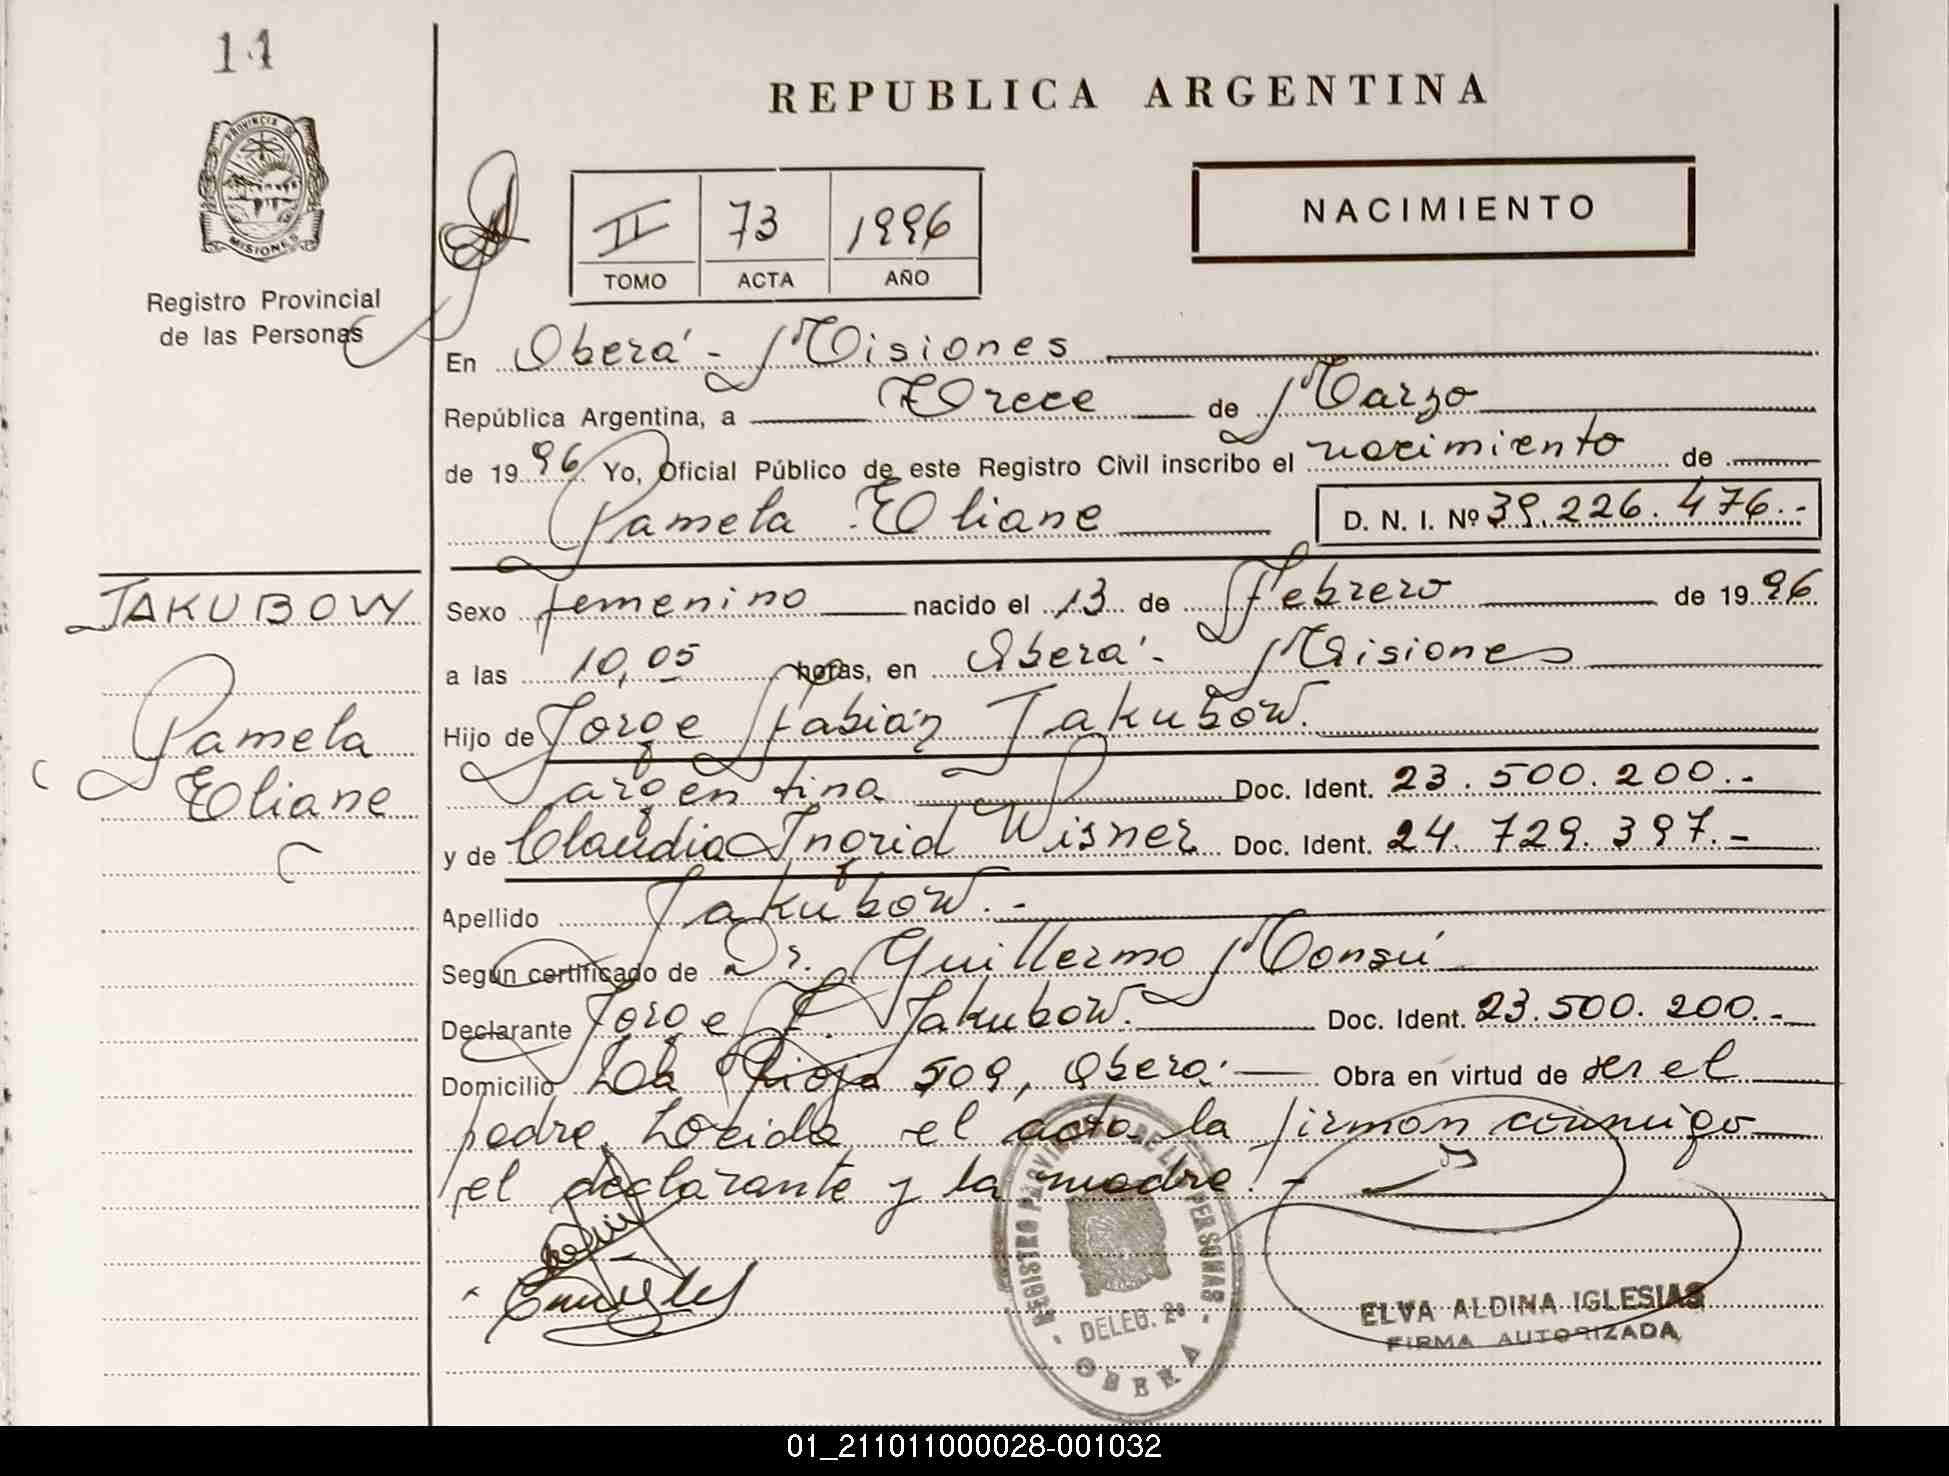 14
REPUBLICA ARGENTINA
PROVINCIA DE
MISIONES
Registro Provincial
de las Personas
II 73 1996
TOMO ACTA AÑO
NACIMIENTO
En Oberá - Misiones
República Argentina, a Trece de Marzo
de 1996 Yo, Oficial Público de este Registro Civil inscribo el nacimiento de
Pamela Eliane D. N. I. Nº 39.226.476.-
JAKUBOW
Pamela
Eliane
Sexo femenino nacido el 13 de Febrero de 1996
a las 10,05 horas, en Oberá - Misiones
Hijo de Jorge Fabián Jakubow.
argentina Doc. Ident. 23.500.200.-
y de Claudia Ingrid Wisner Doc. Ident. 24.729.397.-
Apellido Jakubow.-
Según certificado de Dr. Guillermo Monsú
Declarante Jorge F. Jakubow. Doc. Ident. 23.500.200.-
Domicilio La Rioja 509, Oberá. Obra en virtud de ser el
padre. Leida el acta la firman conmigo
el declarante y la madre.-
REGISTRO PROVINCIAL DE LAS PERSONAS
DELEG. 2a
OBERA
ELVA ALDINA IGLESIAS
FIRMA AUTORIZADA
01_211011000028-001032